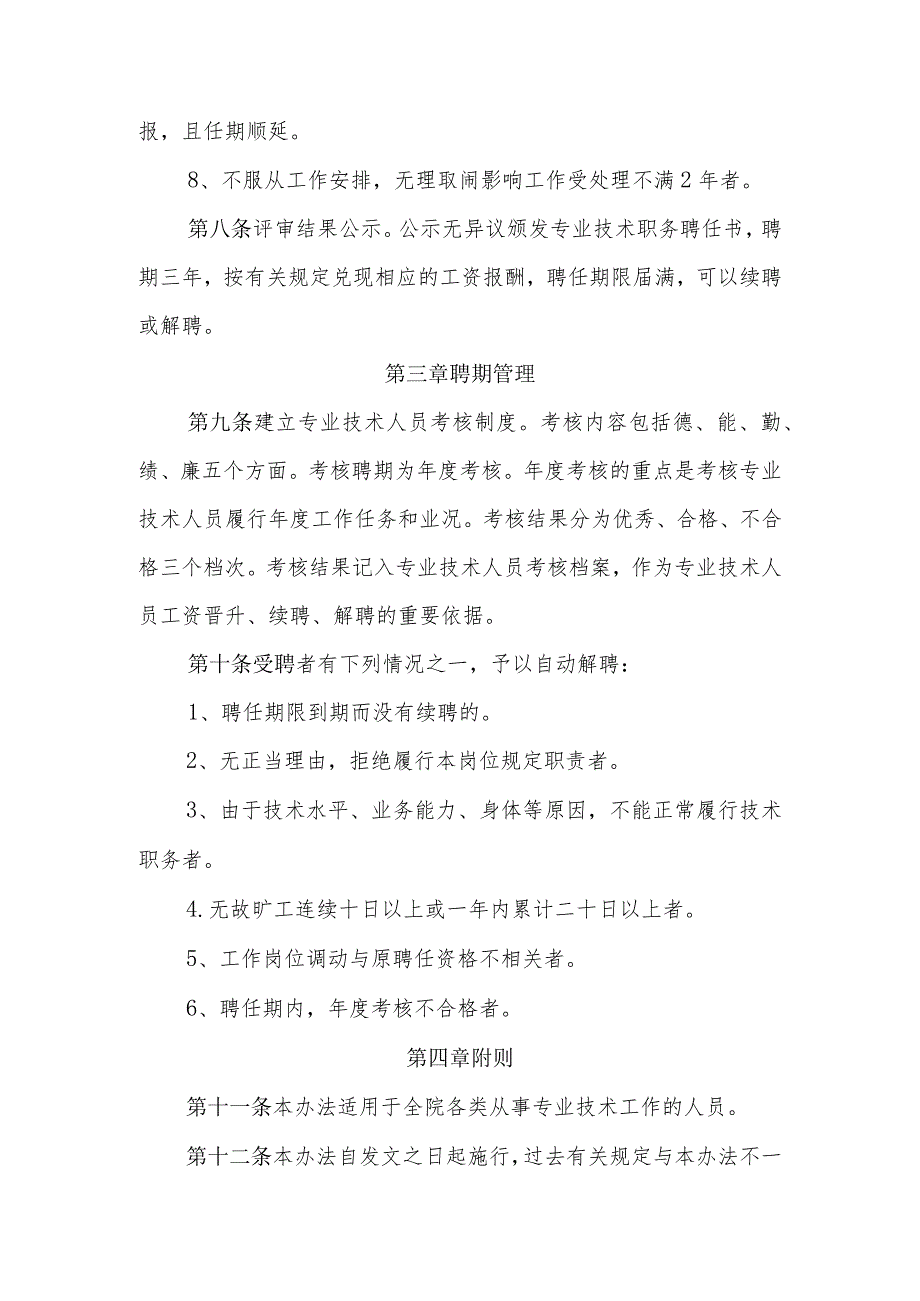 报，且任期顺延。
8、不服从工作安排，无理取闹影响工作受处理不满2年者。
第八条评审结果公示。公示无异议颁发专业技术职务聘任书，聘
期三年，按有关规定兑现相应的工资报酬，聘任期限届满，可以续聘
或解聘。
第三章聘期管理
第九条建立专业技术人员考核制度。考核内容包括德、能、勤、
绩、廉五个方面。考核聘期为年度考核。年度考核的重点是考核专业
技术人员履行年度工作任务和业况。考核结果分为优秀、合格、不合
格三个档次。考核结果记入专业技术人员考核档案，作为专业技术人
员工资晋升、续聘、解聘的重要依据。
第十条受聘者有下列情况之一，予以自动解聘：
1、聘任期限到期而没有续聘的。
2、无正当理由，拒绝履行本岗位规定职责者。
3、由于技术水平、业务能力、身体等原因，不能正常履行技术
职务者。
4.无故旷工连续十日以上或一年内累计二十日以上者。
5、工作岗位调动与原聘任资格不相关者。
6、聘任期内，年度考核不合格者。
第四章附则
第十一条本办法适用于全院各类从事专业技术工作的人员。
第十二条本办法自发文之日起施行,过去有关规定与本办法不一